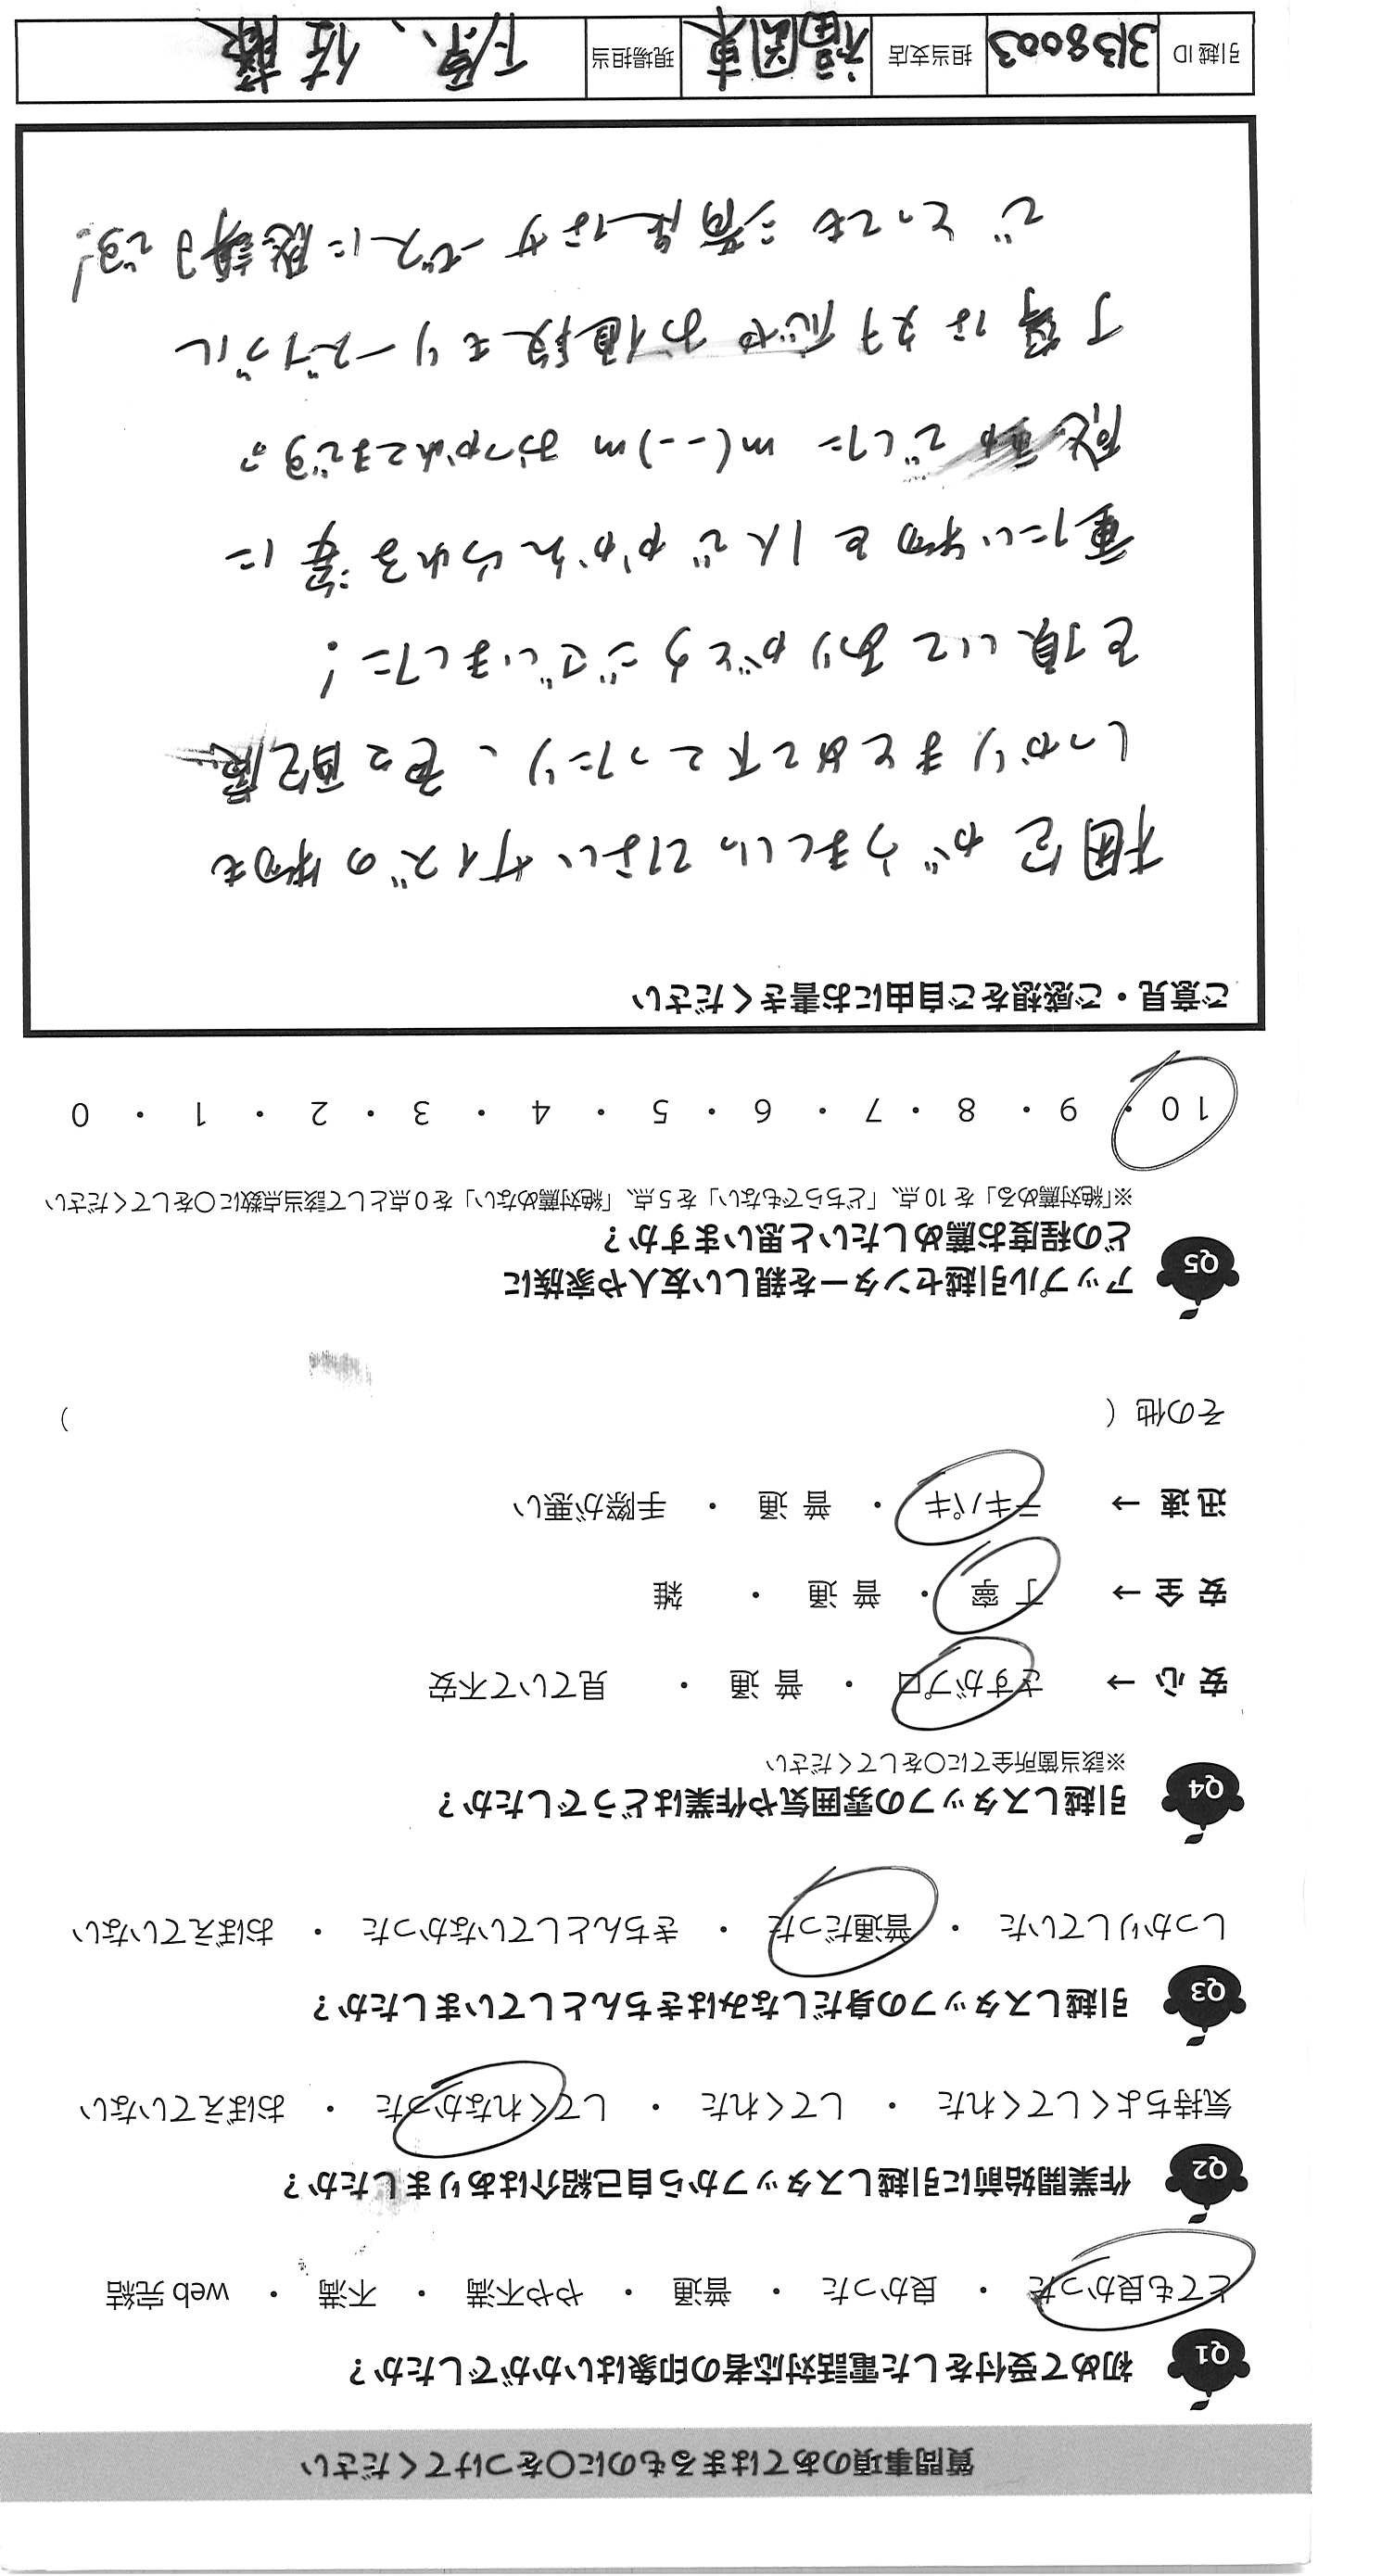 質問事項のあてはまるものに○をつけてください
Q1 初めて受付をした電話対応者の印象はいかがでしたか？
とても良かった ・ 良かった ・ 普通 ・ やや不満 ・ 不満 ・ web 完結
Q2 作業開始前に引越しスタッフから自己紹介はありましたか？
気持ちよくしてくれた ・ してくれた ・ してくれなかった ・ おぼえていない
Q3 引越しスタッフの身だしなみはきちんとしていましたか？
しっかりしていた ・ 普通だった ・ きちんとしていなかった ・ おぼえていない
Q4 引越しスタッフの雰囲気や作業はどうでしたか？
※該当箇所全てに○をしてください
安 心 → さすがプロ ・ 普 通 ・ 見ていて不安
安 全 → 丁 寧 ・ 普 通 ・ 雑
迅 速 → テキパキ ・ 普 通 ・ 手際が悪い
その他（ ）
Q5 アップル引越センターを親しい友人や家族に
どの程度お薦めしたいと思いますか？
※「絶対薦める」を 10 点、「どちらでもない」を 5 点、「絶対薦めない」を 0 点として該当点数に○をしてください
10 ・ 9 ・ 8 ・ 7 ・ 6 ・ 5 ・ 4 ・ 3 ・ 2 ・ 1 ・ 0
ご意見・ご感想をご自由にお書きください
梱包がうまくいってはいサイズの物も
しっかりまとめて下さったり、配慮
を頂いてありがとうございました！
重たい物を1人でかかえられる姿に
感動でした m(--)m おつかれさまです。
丁寧な対応やお値段もリーズナブル
でとっても満足なサービスに感謝です！
引越 ID 3138003 担当支店 福岡東 現場担当 下原、佐藤